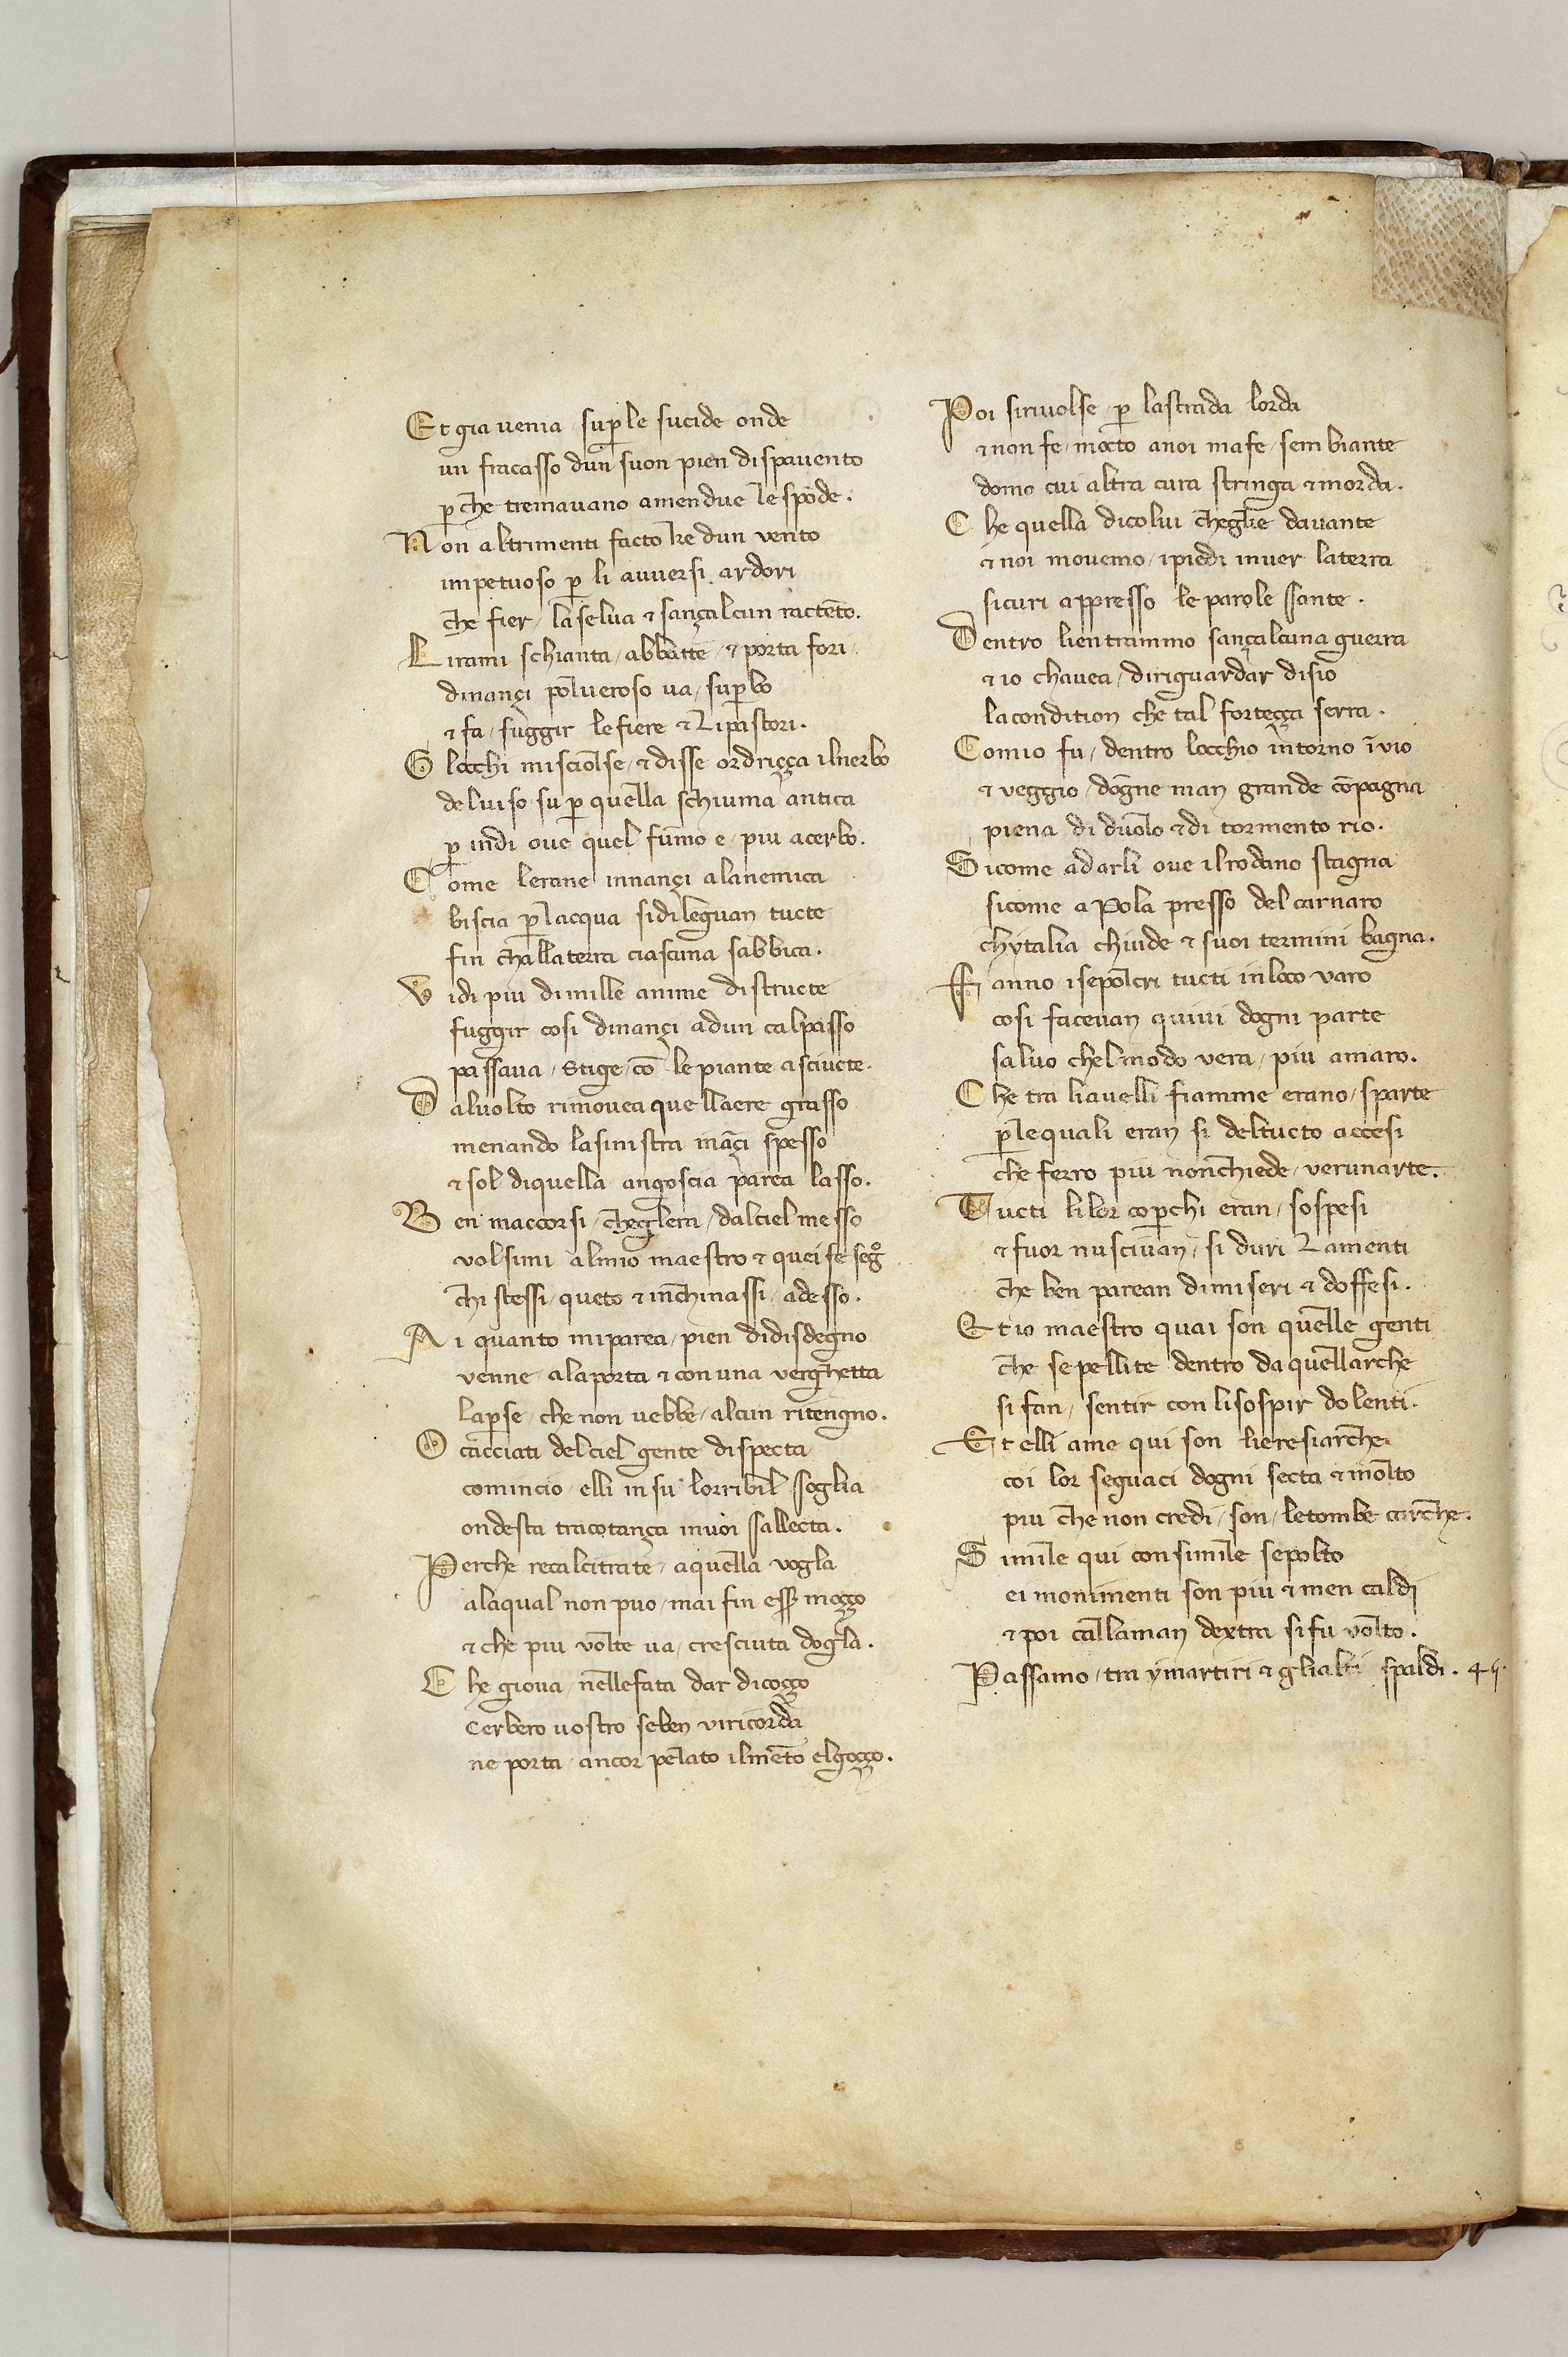 Et gia uenia / sup̱ le sucide onde
un fracasso dun suon pien di spauento
p̱ che tremauano amendue le spōde.
Non altrimenti facto ke dun vento
impetuoso p̱ li auuersi ardori
che fier / la selua & sança lcun ractēto.
Li rami schianta / abbatte / & porta fori /
dinançi polueroso ua / sup̱bo
& fa / fuggir le fiere & Li pastori.
Glocchi misciolse / & disse or driçça ilnerbo
deluiso su p̱ quella schiuma antica
p̱ indi oue quel fūmo e / piu acerbo.
Come lerane innançi alanemica
biscia p̱ lacqua si dileguan tucte
fin challaterra ciascuna sabbica.
Vidi piu dimille anime distructe
fuggir cosi dinançi adun calpasso
passaua / Stige / cō le piante asciucte.
Daluolto rimouea quellaere grasso
menando lasinistra ināçi spesso
& sol diquella angoscia parea lasso.
Ben maccorsi / cheglera / dalciel messo
volsimi almio maestro & quei fe segº
chi stessi / queto & inchinassi / adesso.
Ai quanto miparea / pien didisdegno
venne / alaporta & con una verghetta
lap̱se / che non uebbe / alcun ritengno.
O cacciati delciel gente dispecta
comincio / elli in su lorribil soglia
ondesta tracotança inuoi sallecta.
Perche recalcitrate / aquella vogla
alaqual non puo / mai fin ess̱ moçço
& che piu volte ua / cresciuta dogla.
Che gioua / nellefata dar dicoçço
Cerbero uostro seben viricorda
ne porta / ancor pelato ilmēto elgoçço.
Poi siriuolse / p̱ lastrada lorda
& non fe / mocto anoi mafe / sembiante
domo cui altra cura stringa & morda.
Che quella dicolui chegle davante
& noi mouemo / ipiedi inuer laterra
sicuri appresso le parole sante.
Dentro lientrammo sançalcuna guerra
& io chauea / diriguardar disio
lacondition che tal forteçça serra.
Comio fu / dentro locchio intorno īvio
& veggio / dogne man grande cōpagna
piena di duolo & di tormento rio.
Sicome ad arli oue ilrodano stagna
sicome a Pola presso del carnaro
chytalia chiude & suoi termini bagna.
Fanno isepolcri tucti inloco varo
cosi faceuan quiui dogni parte
saluo chelmodo vera / piu amaro.
Che tra liauelli fiamme erano / sparte
p̱ lequali eran si deltucto accesi
che ferro piu nonchiede / verunarte.
Tucti lilor cop̱chi eran / sospesi
& fuor nusciuan / si duri Lamenti
che ben parean dimiseri & doffesi.
Et io maestro quai son quelle genti
che sepellite dentro da quellarche
si fan / sentir con lisospir dolenti.
Et elli ame qui son lieresiarche
coi lor seguaci dogni secta & molto
piu che non credi / son / letombe carche.
Simile qui con simile sepolto
ei monimenti son piu & men caldi
& poi callaman dextra si fu volto.
Passamo / tra ymartiri & glialti spaldi. 45.